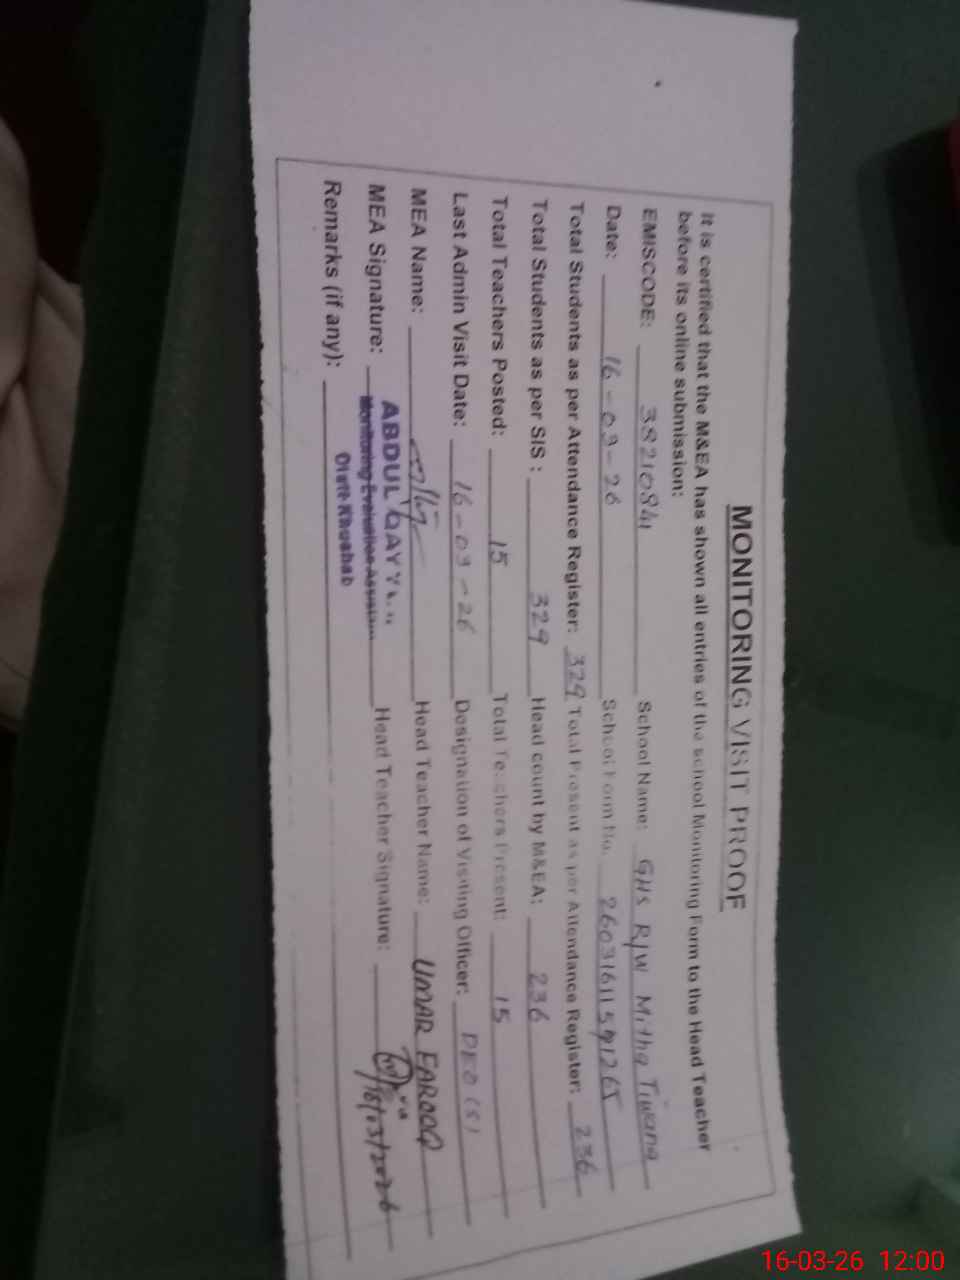 MONITORING VISIT PROOF
It is certified that the M&EA has shown all entries of the school Monitoring Form to the Head Teacher
before its online submission:
EMISCODE: 38210841 School Name: GHS R/W Mitha Tiwana
Date: 16-03-26 School Form No.
Total Students as per Attendance Register: 329 Total Present as per Attendance Register: 236
Total Students as per SIS: 329 Head count by M&EA: 236
Total Teachers Posted: 15 Total Teachers Present: 15
Last Admin Visit Date: 16-03-26 Designation of Visiting Officer: DEO (S)
MEA Name: Head Teacher Name: UMAR FAROOQ
MEA Signature: ABDUL Head Teacher Signature:
Monitoring Evaluation Assistant
Distt: Khushab
16/03/2026
Remarks (if any):
16-03-26 12:00